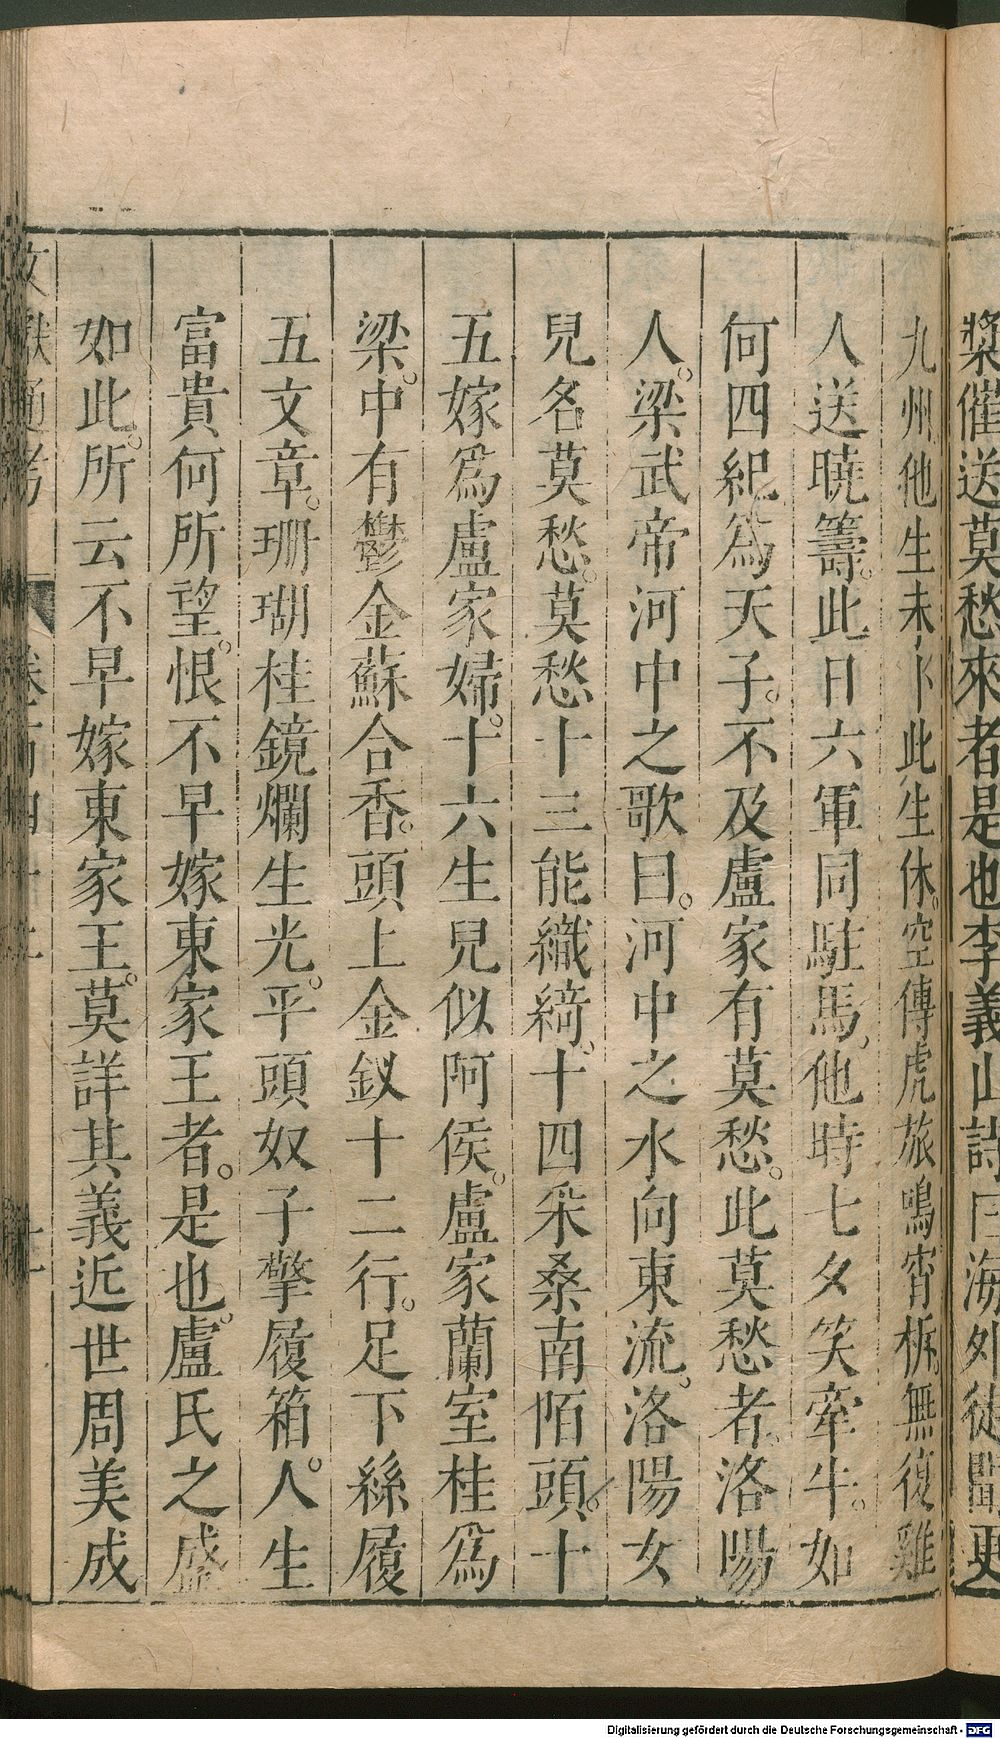 槳催送莫愁來者是也李義山詩曰海外徒聞更
九州他生未卜此生休。空傳虎旅鳴宵柝。無復雞
人送曉籌。此日六軍同駐馬。他時七夕笑牽牛。如
何四紀爲天子。不及盧家有莫愁。此莫愁者。洛陽
人。梁武帝河中之歌曰。河中之水向東流。洛陽女
兒名莫愁。莫愁十三能織綺。十四采桑南陌頭。十
五嫁爲盧家婦。十六生兒似阿侯。盧家蘭室桂爲
梁。中有鬱金蘇合香。頭上金釵十二行。足下絲履
五文章。珊瑚桂鏡爛生光。平頭奴子擎履箱。人生
富貴何所望。恨不早嫁東家王者。是也。盧氏之盛
如此。所云不早嫁東家王。莫詳其義近世周美成
文獻通考
Digitalisierung gefördert durch die Deutsche Forschungsgemeinschaft - DFG